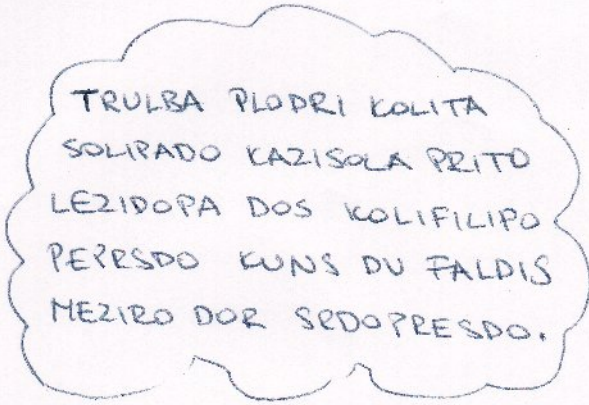 TRULBA PLODRI KOLITA
SOLIPADO KAZISOLA PRITO
LEZIDOPA DOS KOLIFILIPO
PEPRSDO KUNS DU FALDIS
MEZIRO DOR SPDOPRESDO.